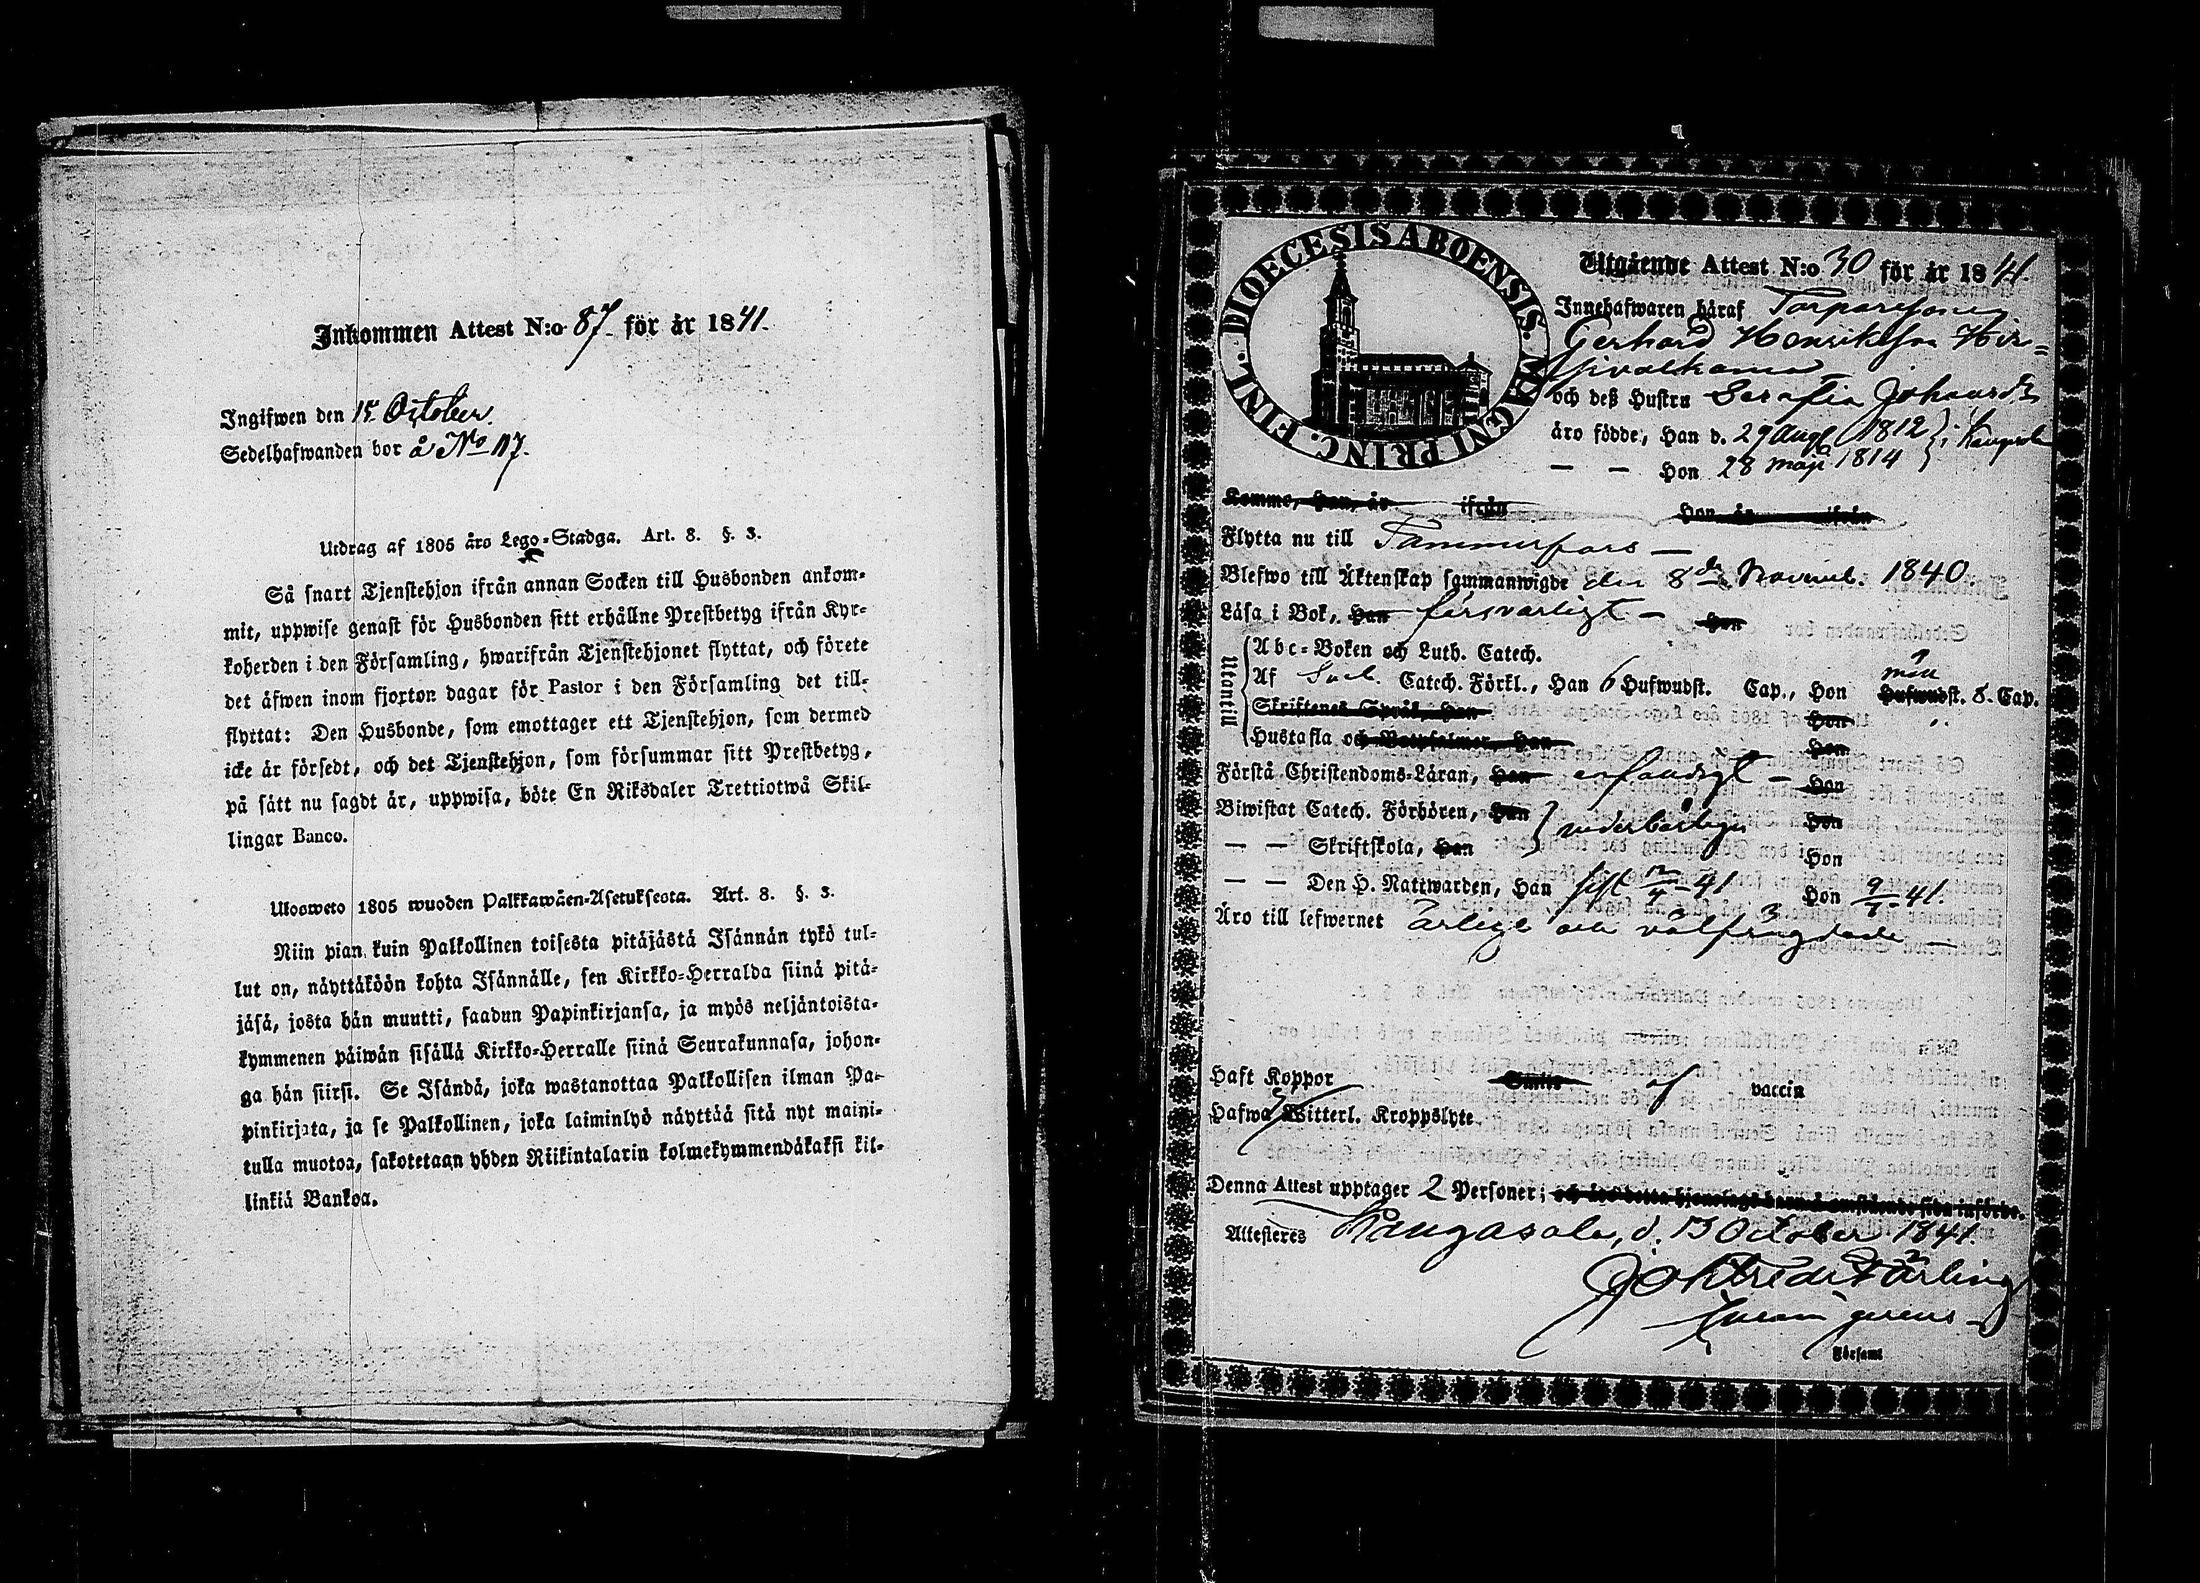 Inkommen Attest N:o 87. för år 1841.
Ingifwen den 15 October.
Sedelhafwanden bor å No 117.
Utdrag af 1805 års Lego-Stadga. Art. 8. §. 3.
Så snart Tjenstehjon ifrån annan Socken till Husbonden ankom-
mit, uppwise genast för Husbonden sitt erhållne Prestbetyg ifrån Kyr-
koherden i den Församling, hwarifrån Tjenstehjonet flyttat, och förete
det äfwen inom fjorton dagar för Pastor i den Församling det till-
flyttat: Den Husbonde, som emottager ett Tjenstehjon, som dermed
icke är försedt, och det Tjenstehjon, som försummar sitt Prestbetyg,
på sätt nu sagdt är, uppwisa, böte En Riksdaler Trettiotwå Skil-
lingar Banco.
Ulosweto 1805 wuoden Palkkawäen-Asetuksesta. Art. 8. §. 3.
Niin pian kuin Palkollinen toisesta pitäjästä Isännän tykö tul-
lut on, näyttäköön kohta Isännälle, sen Kirkko-Herralda siinä pitä-
jäsä, josta hän muutti, saadun Papinkirjansa, ja myös neljäntoista-
kymmenen päiwän sisällä Kirkko-Herralle siinä Seurakunnasa, johon-
ga hän siirsi. Se Isändä, joka wastanottaa Palkollisen ilman Pa-
pinkirjata, ja se Palkollinen, joka laiminlyö näyttää sitä nyt maini-
tulla muotoa, sakotetaan yhden Riikintalarin kolmekymmendäkaksi kil-
linkiä Bankoa.
DIOECESIS ABOENSIS. MAGNI PRINC. FINL.
Utgående Attest N:o 30 för år 1841.
Innehafwaren häraf Torparesonen
Gerhard Henriksson Hir-
sivalkama
och deß Hustru Serafia Johansdr
äro födde, Han d. 29 Aug 1812 } i Kangasala
— — Hon 28 maji 1814
Komme, Han, är ifrån Hon är ifrån
Flytta nu till Tammerfors —
Blefwo till Äktenskap sammanwigde den 8de Novemb. 1840.
Läsa i Bok, Han försvarligt — Hon
Utantill
Abc-Boken och Luth. Catech.
Af Sveb. Catech. Förkl., Han 6 Hufwudst. Cap., Hon Hufwudst. 8. Cap.
Skriftenes Språk, Han Hon
Hustafla och Botpsalmer, Han Hon
Förstå Christendoms-Läran, Han Hon
Biwistat Catech. Förhören, Han Hon
— — Skriftskola, Han Hon
— — Den H. Nattwarden, Han sist 12/4 -41 Hon -41.
Äro till lefwernet ärlige och välfrägdade —
Haft Koppor Smitt af vaccin
Hafwa Witterl. Kroppslyte.
Denna Attest upptager 2 Personer; och äro detta hjonelags barn å omstående sida införde.
Attesteres Kangasala, d. 13 October 1841.
Församl